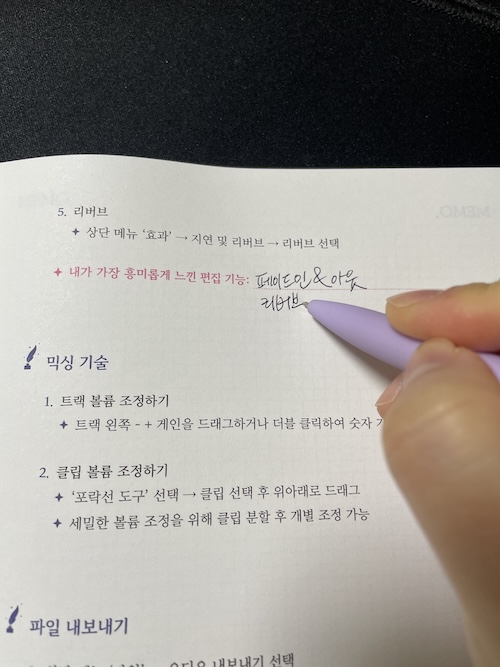 5. 리버브
✦ 상단 메뉴 ‘효과’ → 지연 및 리버브 → 리버브 선택
✦ 내가 가장 흥미롭게 느낀 편집 기능: 페이드인 & 아웃
리버브
믹싱 기술
1. 트랙 볼륨 조정하기
✦ 트랙 왼쪽 - + 게인을 드래그하거나 더블 클릭하여 숫자
2. 클립 볼륨 조정하기
✦ ‘포락선 도구’ 선택 → 클립 선택 후 위아래로 드래그
✦ 세밀한 볼륨 조정을 위해 클립 분할 후 개별 조정 가능
파일 내보내기
오디오 내보내기 선택